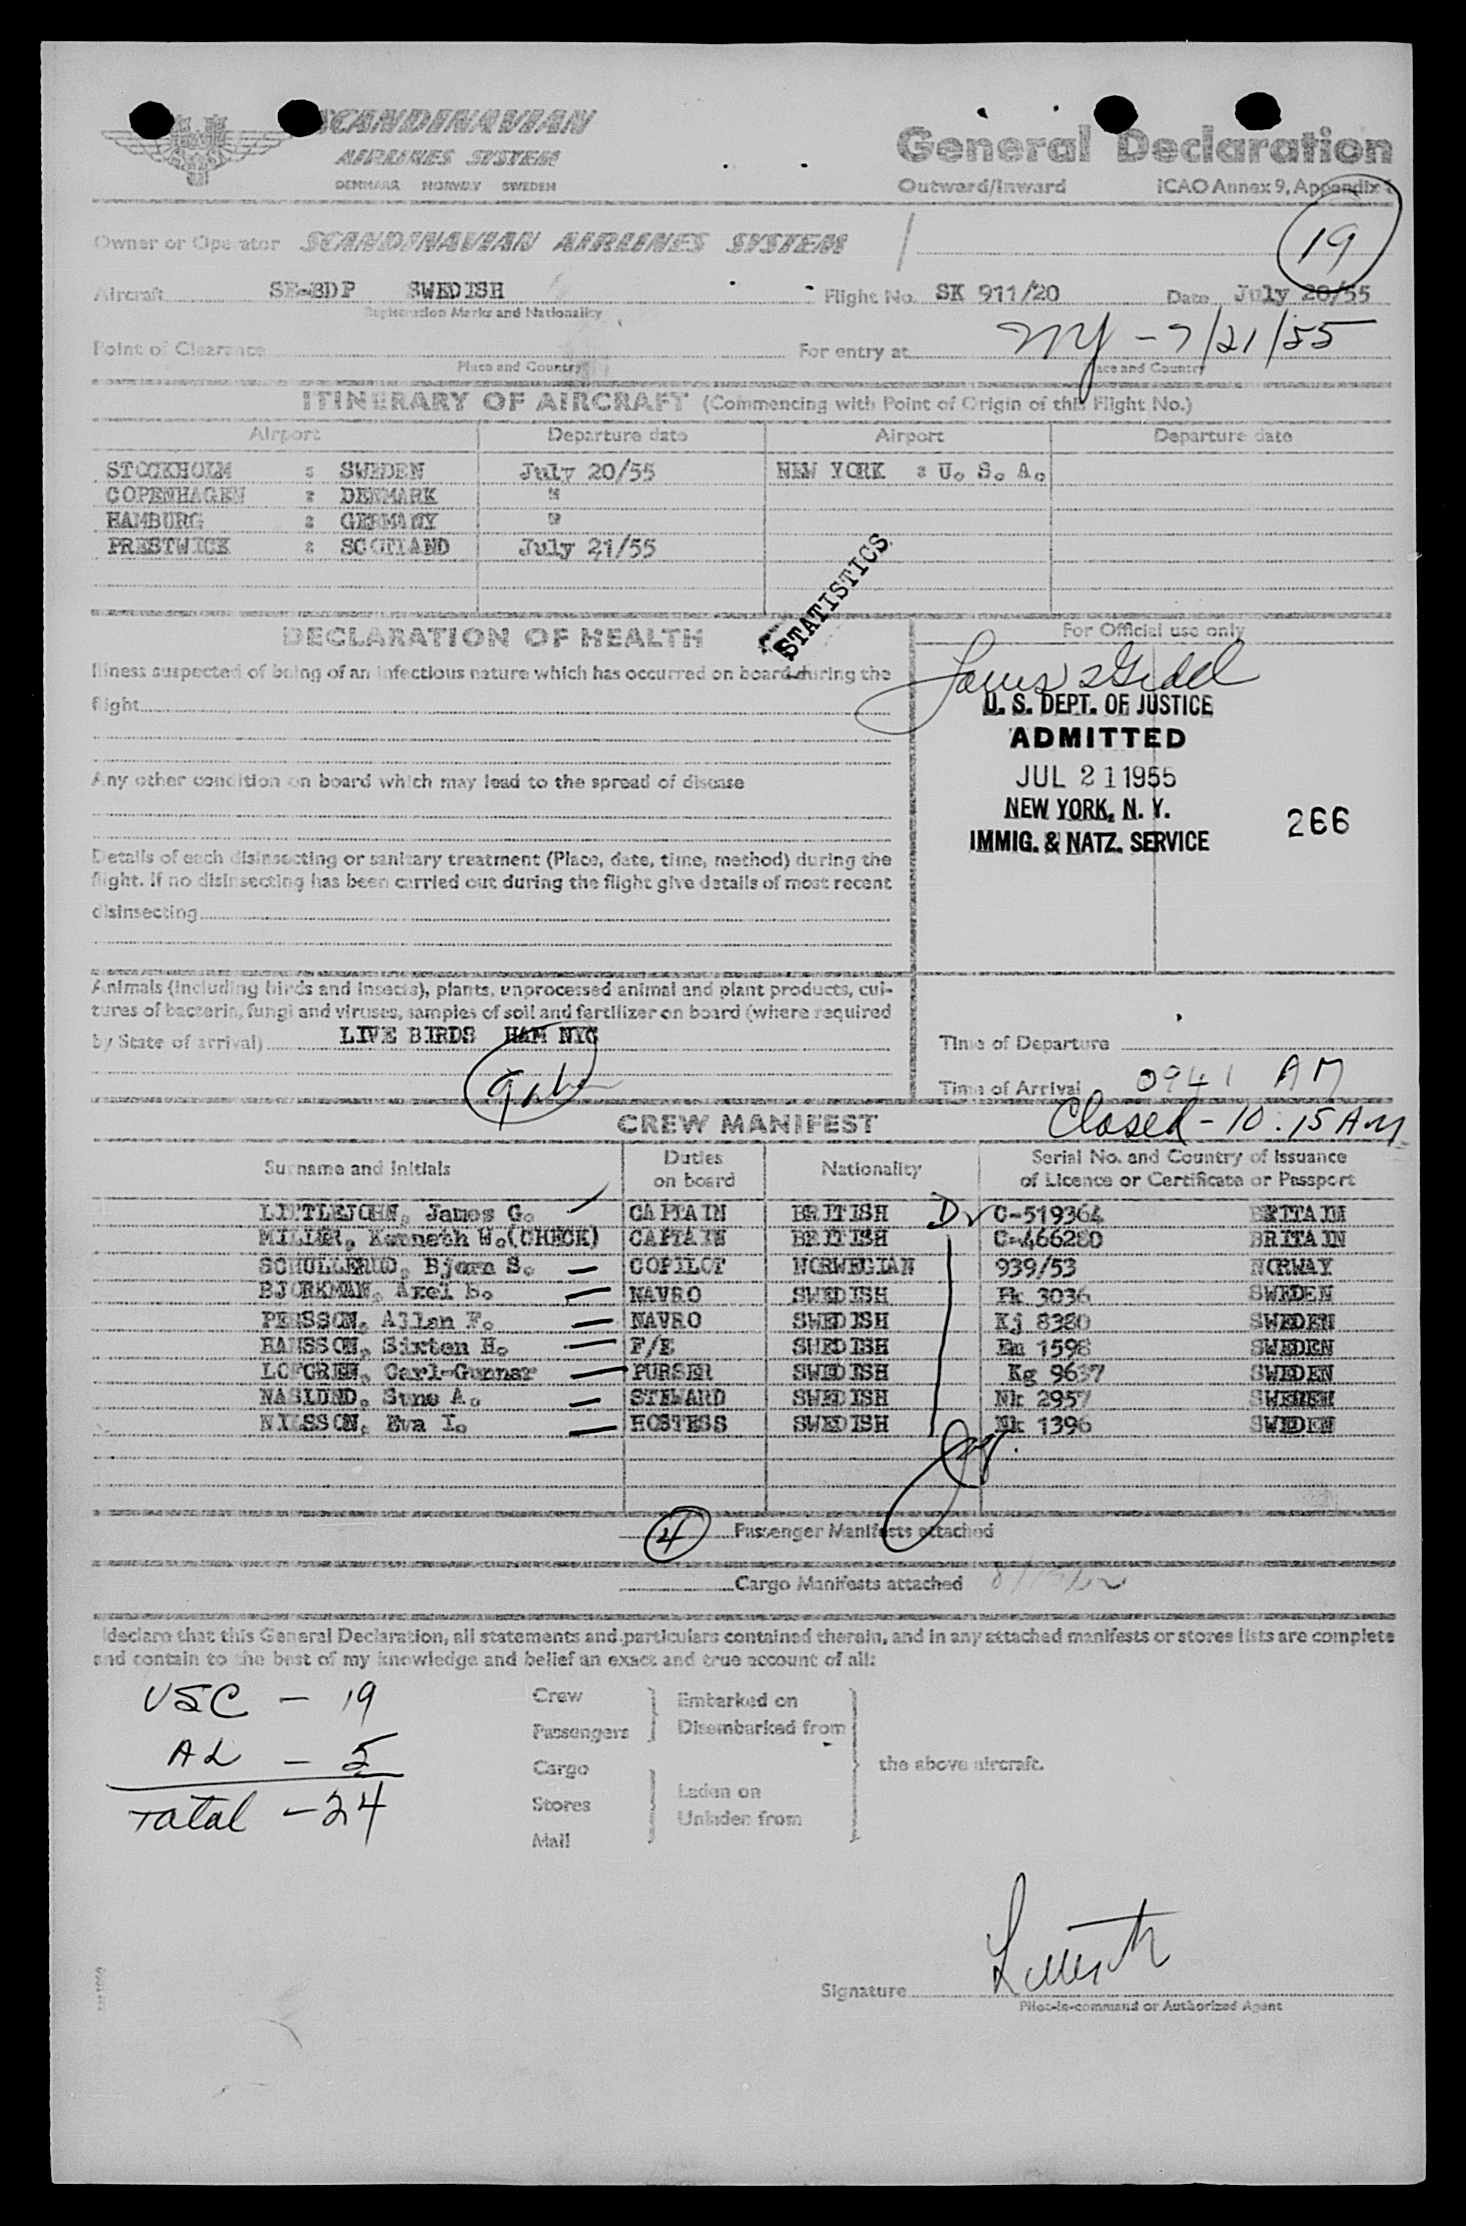 SCANDINAVIAN
AIRLINES SYSTEM
DENMARK NORWAY SWEDEN
General Declaration
Outward/Inward ICAO Annex 9, Appendix 1
19
Owner or Operator SCANDINAVIAN AIRLINES SYSTEM
Aircraft SE-BDP SWEDISH Flight No. SK 911/20 Date July 20/55
Registration Marks and Nationality
Point of Clearance For entry at NY - 7/21/55
Place and Country Place and Country
ITINERARY OF AIRCRAFT (Commencing with Point of Origin of this Flight No.)
Airport Departure date Airport Departure date
STOCKHOLM : SWEDEN July 20/55 NEW YORK : U. S. A.
COPENHAGEN : DENMARK "
HAMBURG : GERMANY "
PRESTWICK : SCOTLAND July 21/55
STATISTICS
DECLARATION OF HEALTH For Official use only
Illness suspected of being of an infectious nature which has occurred on board during the
flight
U. S. DEPT. OF JUSTICE
ADMITTED
JUL 21 1955
NEW YORK, N. Y.
IMMIG. & NATZ. SERVICE
266
Any other condition on board which may lead to the spread of disease
Details of each disinsecting or sanitary treatment (Place, date, time, method) during the
flight. If no disinsecting has been carried out during the flight give details of most recent
disinsecting
Animals (including birds and insects), plants, unprocessed animal and plant products, cul-
tures of bacteria, fungi and viruses, samples of soil and fertilizer on board (where required
by State of arrival) LIVE BIRDS HAM NYC
Time of Departure
Time of Arrival 0941 AM
Closed - 10:15 AM
CREW MANIFEST
Surname and Initials Duties on board Nationality Serial No. and Country of Issuance of Licence or Certificate or Passport
LITTLEJOHN, James G. CAPTAIN BRITISH D C-519364 BRITAIN
MILLER, Kenneth W.(CHECK) CAPTAIN BRITISH C-466280 BRITAIN
SCHULLERUD, Bjorn S. COPILOT NORWEGIAN 939/53 NORWAY
BJORKMAN, Axel B. NAVRO SWEDISH Hk 3036 SWEDEN
PERSSON, Allan F. NAVRO SWEDISH Kj 8380 SWEDEN
HANSSON, Sixten H. F/E SWEDISH Em 1598 SWEDEN
LOFGREN, Carl-Gunnar PURSER SWEDISH Kg 9637 SWEDEN
NASLUND, Sune A. STEWARD SWEDISH Nk 2957 SWEDEN
NILSSON, Eva I. HOSTESS SWEDISH Nk 1396 SWEDEN
4 Passenger Manifests attached
Cargo Manifests attached
I declare that this General Declaration, all statements and particulars contained therein, and in any attached manifests or stores lists are complete
and contain to the best of my knowledge and belief an exact and true account of all:
USC - 19
AL - 5
Total - 24
Crew
Passengers
Embarked on
Disembarked from
Cargo
Stores
Mail
Laden on
Unladen from
the above aircraft.
Signature
Pilot-in-command or Authorized Agent